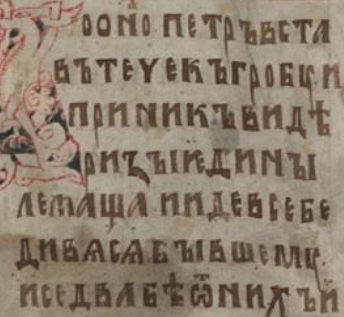 ОО НО ПЕТРЪ ВСТА
ВЪ ТЕЧЕ КЪ ГРОБꙊ И
ПРИНИКЪ ВИДѢ
РИꙀЪІ ЕДИНЪІ
ЛЕЖАЩА И ИДЕ В СЕБЕ
ДИВѦСѦ БЪІВШЕМꙊ
И СЕ ДЪВА БѢ Ѿ НИХЪ И